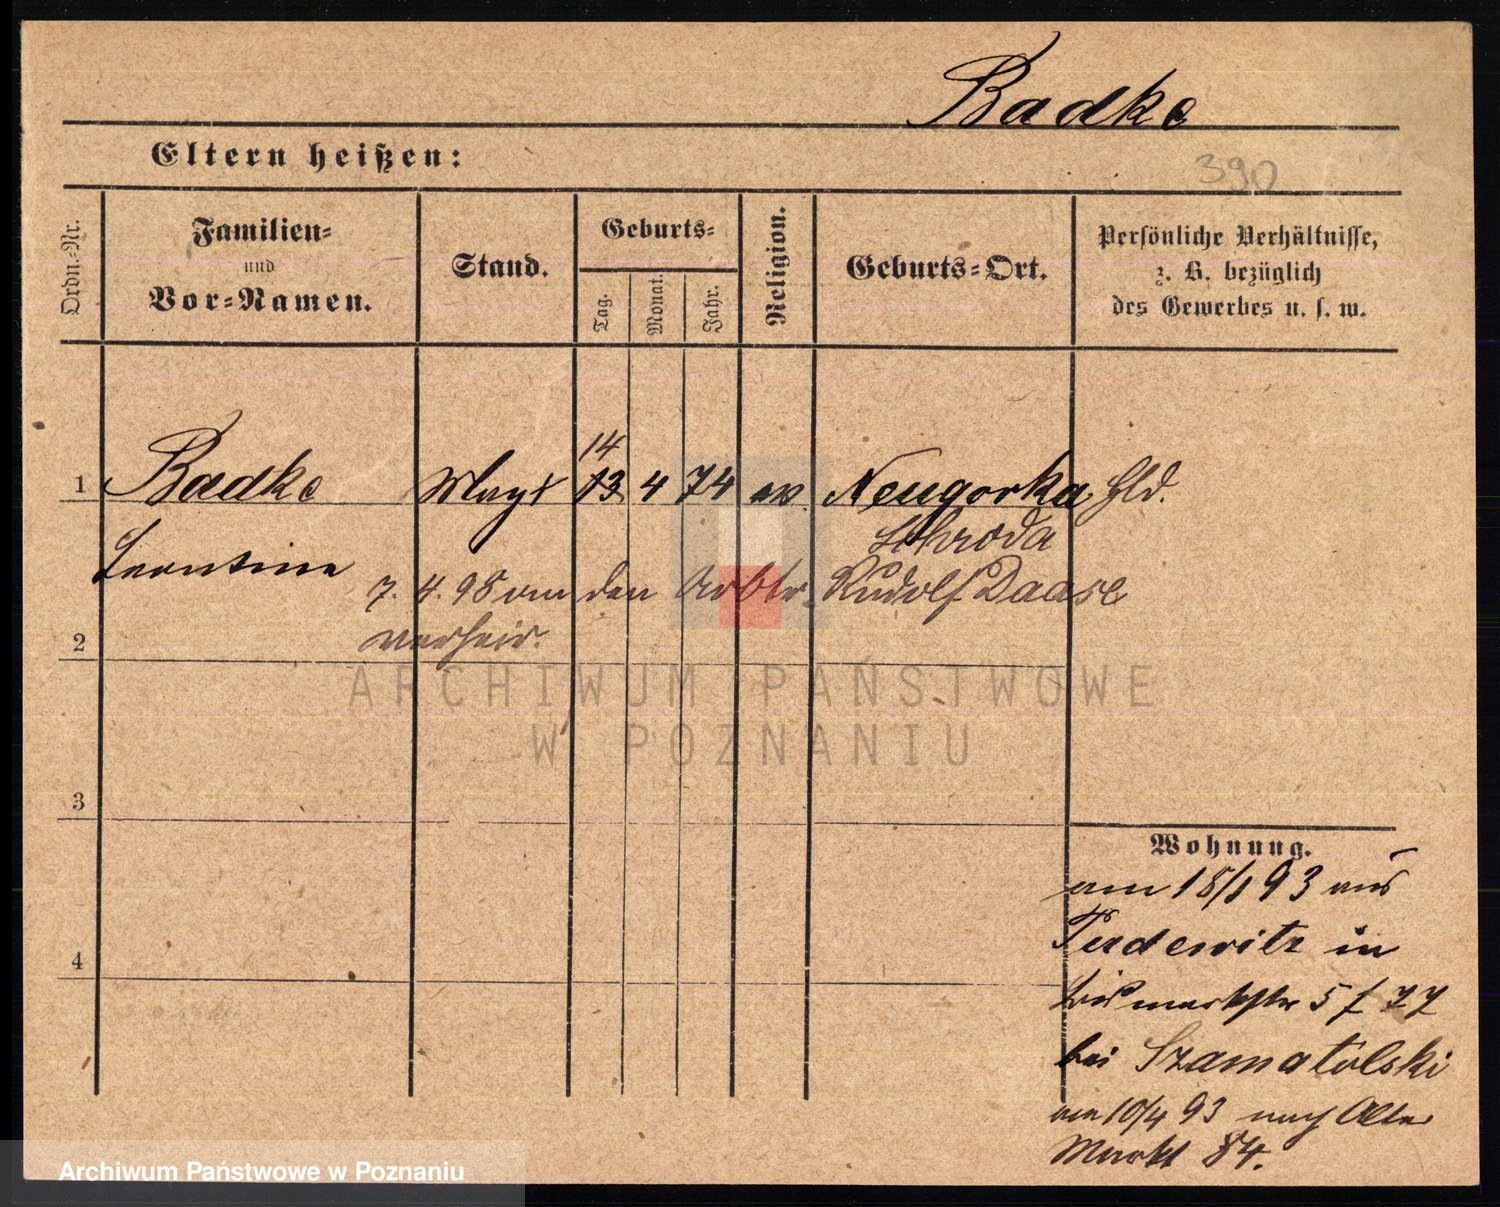 Badke
Eltern heißen:
390
Ordn.-Nr.
Familien-
und
Vor-Namen.
Stand.
Geburts-
Tag.
Monat.
Jahr.
Religion.
Geburts-Ort.
Persönliche Verhältnisse,
z. B. bezüglich
des Gewerbes u. s. w.
14
1 Badke Magd 13 4 74 ev. Neugorka
Schroda
Leontine
7. 4. 98 am den Arbtr. Rudolf Daase
verheir.
2
3
4
Wohnung.
am 18/1 93 aus
in
Bismarckstr 5
bei Szamatolski
am 10/4 93 nach Alter
Markt 84.
ARCHIWUM PAŃSTWOWE
W POZNANIU
Archiwum Państwowe w Poznaniu